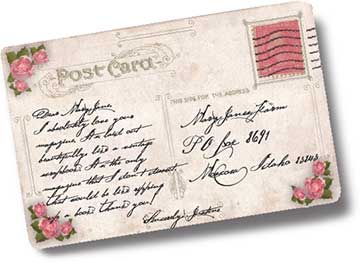 Post Card
THIS SIDE FOR THE ADDRESS
Dear Mary Jane,
I absolutely love your
magazine. It is laid out
beautifully, like a vintage
scrapbook. It is the only
magazine that I don't dissect.
that would be like ripping
up a book. Thank you!
Sincerely,
Mary Janes Farm
P O Box 8691
Moscow Idaho 83843